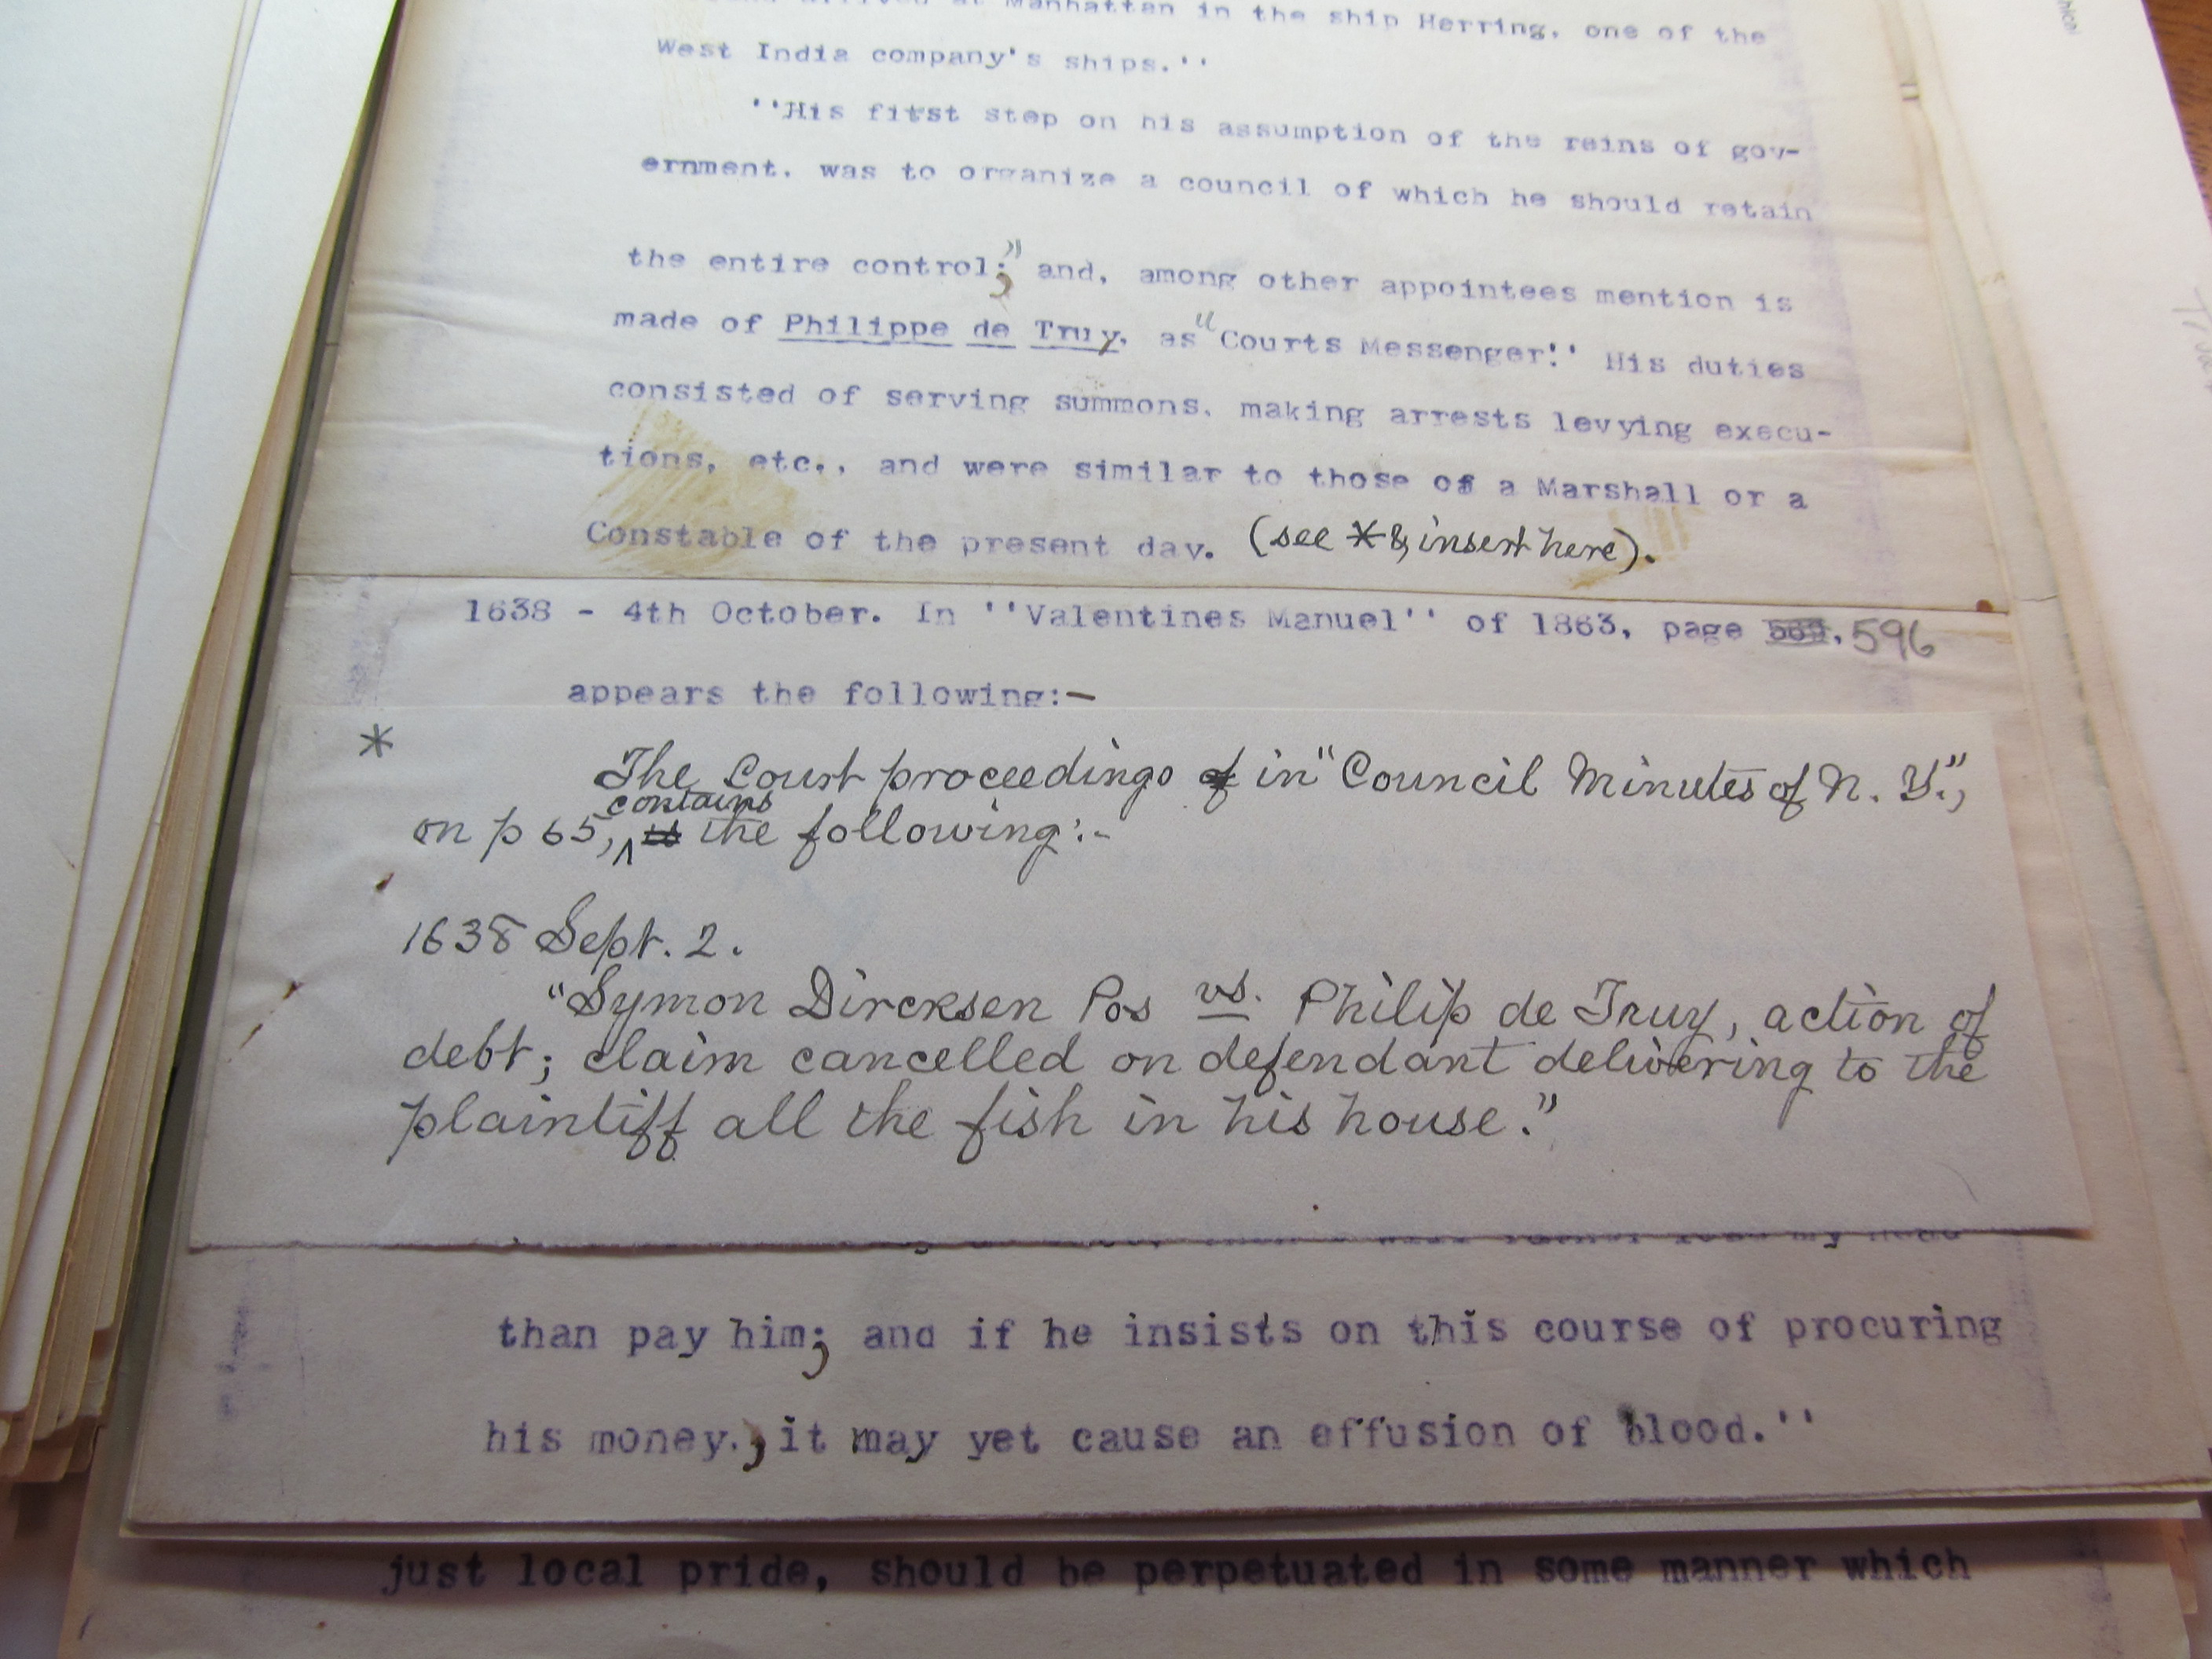 arrived at Manhattan in the ship Herring, one of the
West India company's ships.''
''His first step on his assumption of the reins of gov-
ernment. was to organize a council of which he should retain
the entire control;" and, among other appointees mention is
made of Philippe de Truy, as "Courts Messenger!' His duties
consisted of serving summons. making arrests levying execu-
tions, etc., and were similar to those of a Marshall or a
Constable of the present day. (see * & insert here).
1638 - 4th October. In ''Valentines Manuel'' of 1863, page 569, 596
appears the following:-
* The Court proceedings of in "Council Minutes of N. Y.",
contains
on p 65, ^ the following:-
1638 Sept. 2.
"Symon Dircksen Pos vs. Philip de Truy, action of
debt; claim cancelled on defendant delivering to the
plaintiff all the fish in his house."
my head
than pay him; and if he insists on this course of procuring
his money., it may yet cause an effusion of blood.''
just local pride, should be perpetuated in some manner which